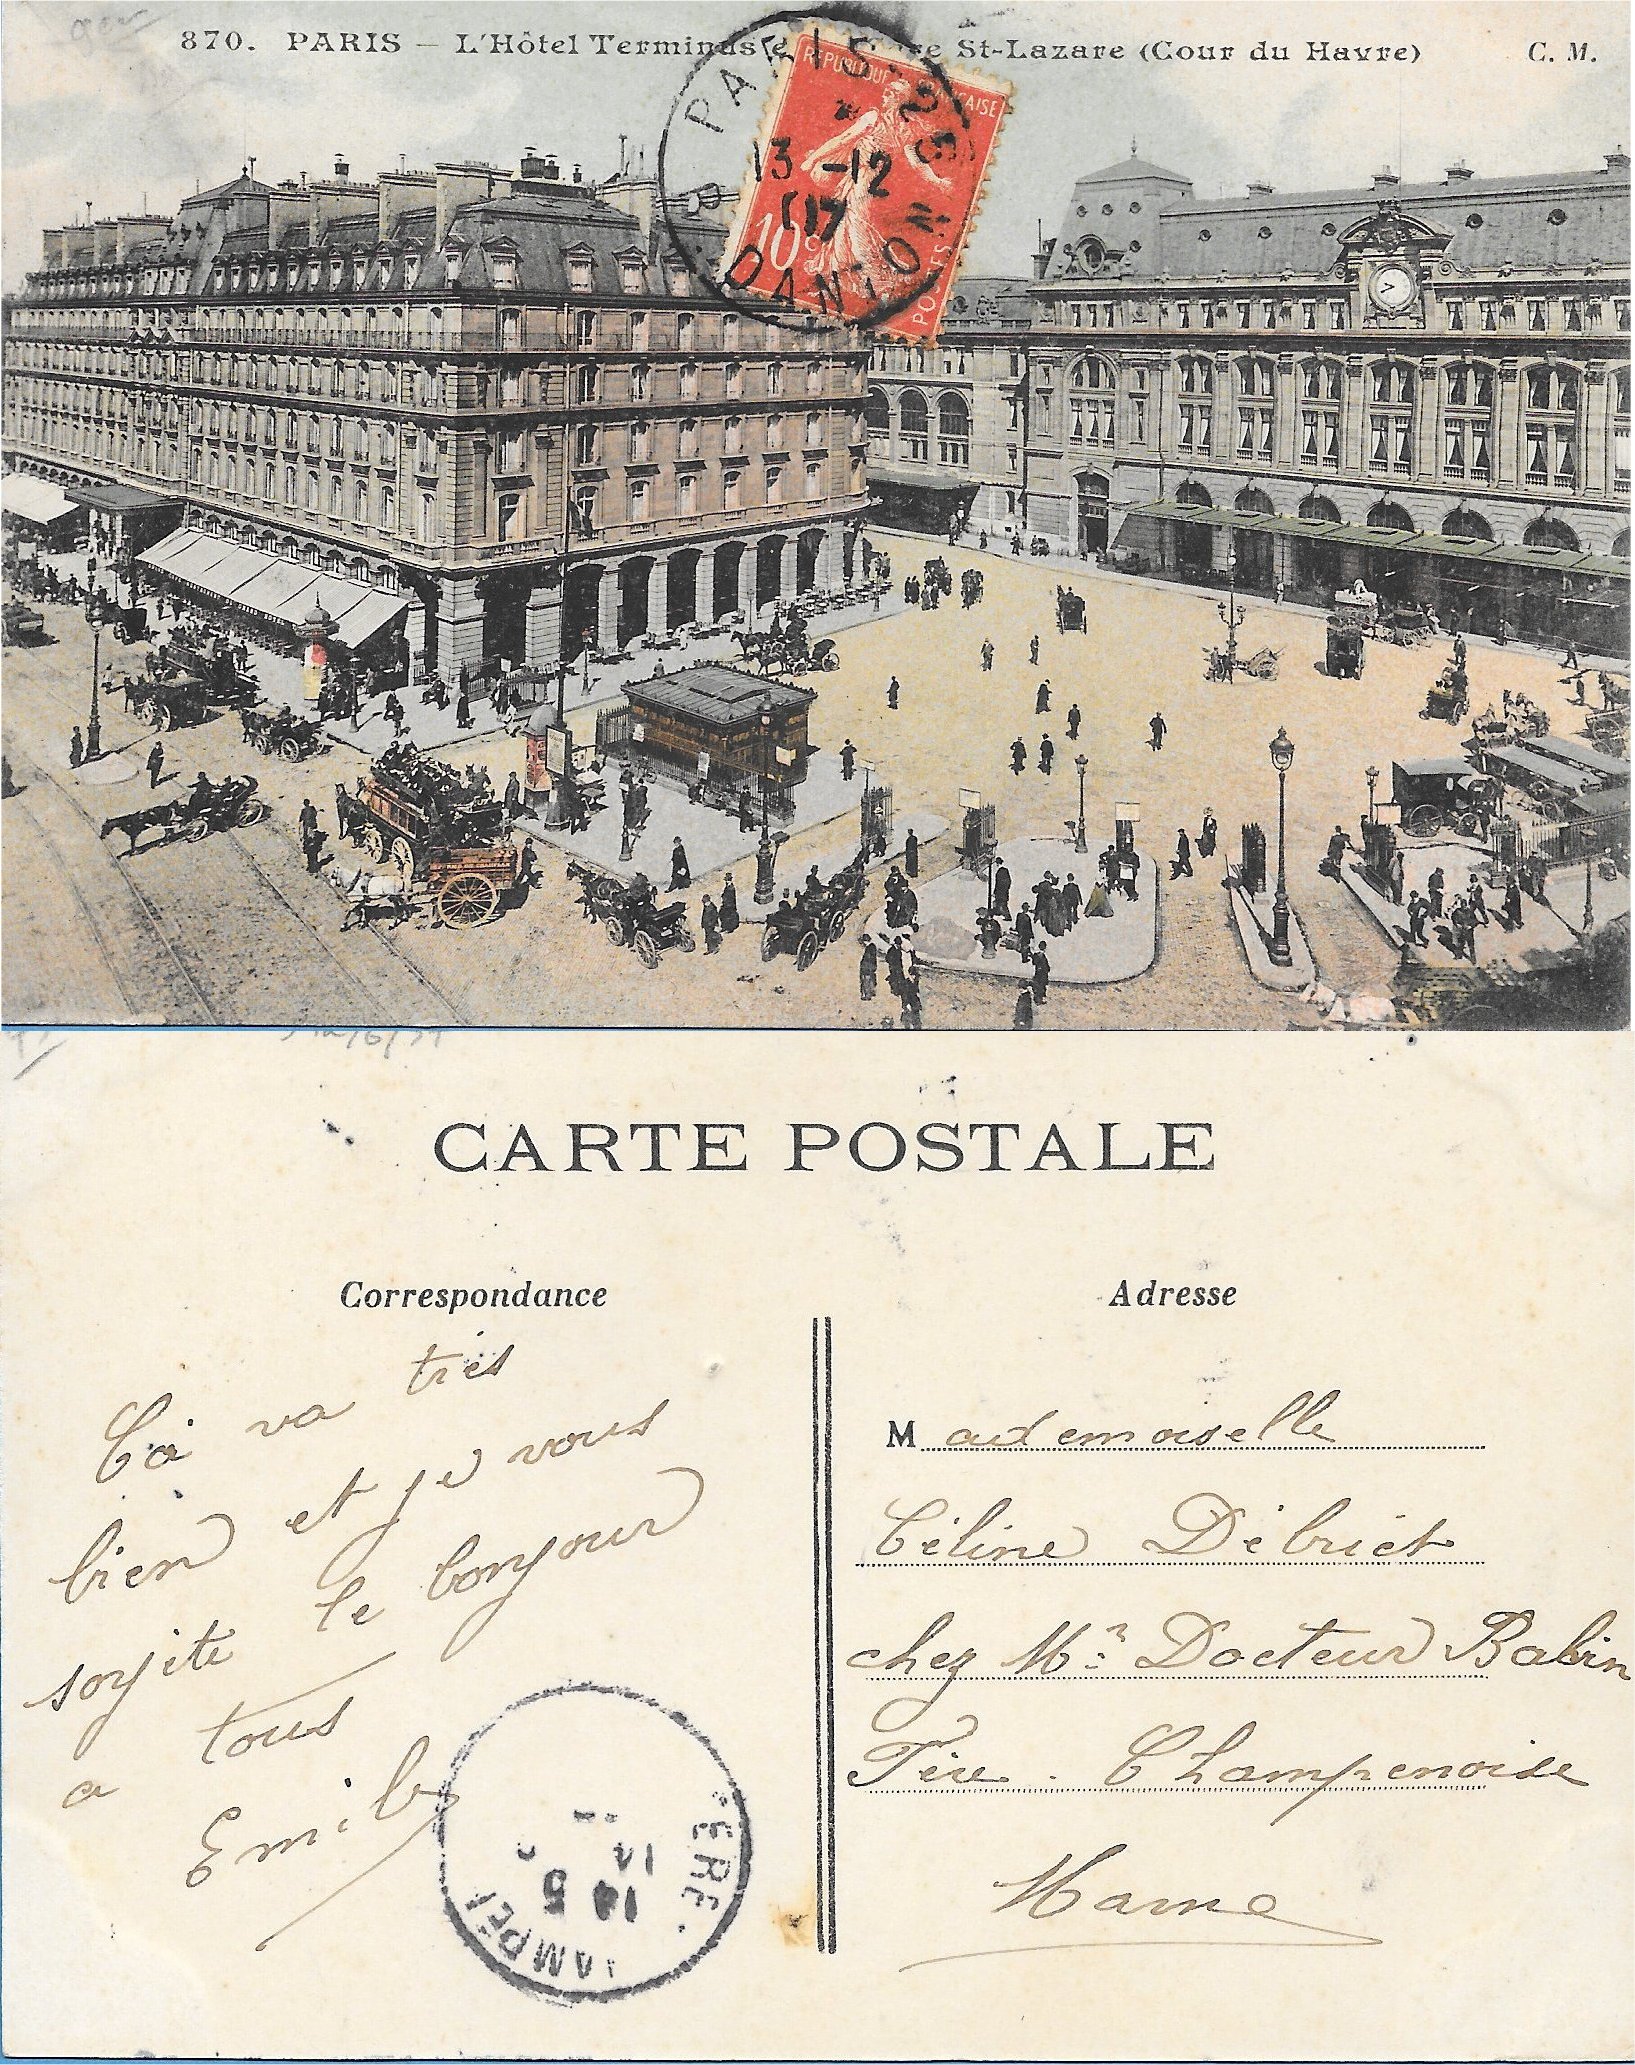 870. PARIS – L'Hôtel Terminus St-Lazare (Cour du Havre) C. M.
PARIS 25
REPUBLIQUE FRANÇAISE
13 -12
07
10c
POSTES
DANTON
CARTE POSTALE
Correspondance
Ca va très
bien et je vous
le bonjour
a tous
Emile
FERE
14 5
Adresse
Mademoiselle
Céline Débriet
chez Mr Docteur Babin
Fère. Champenoise
Marne